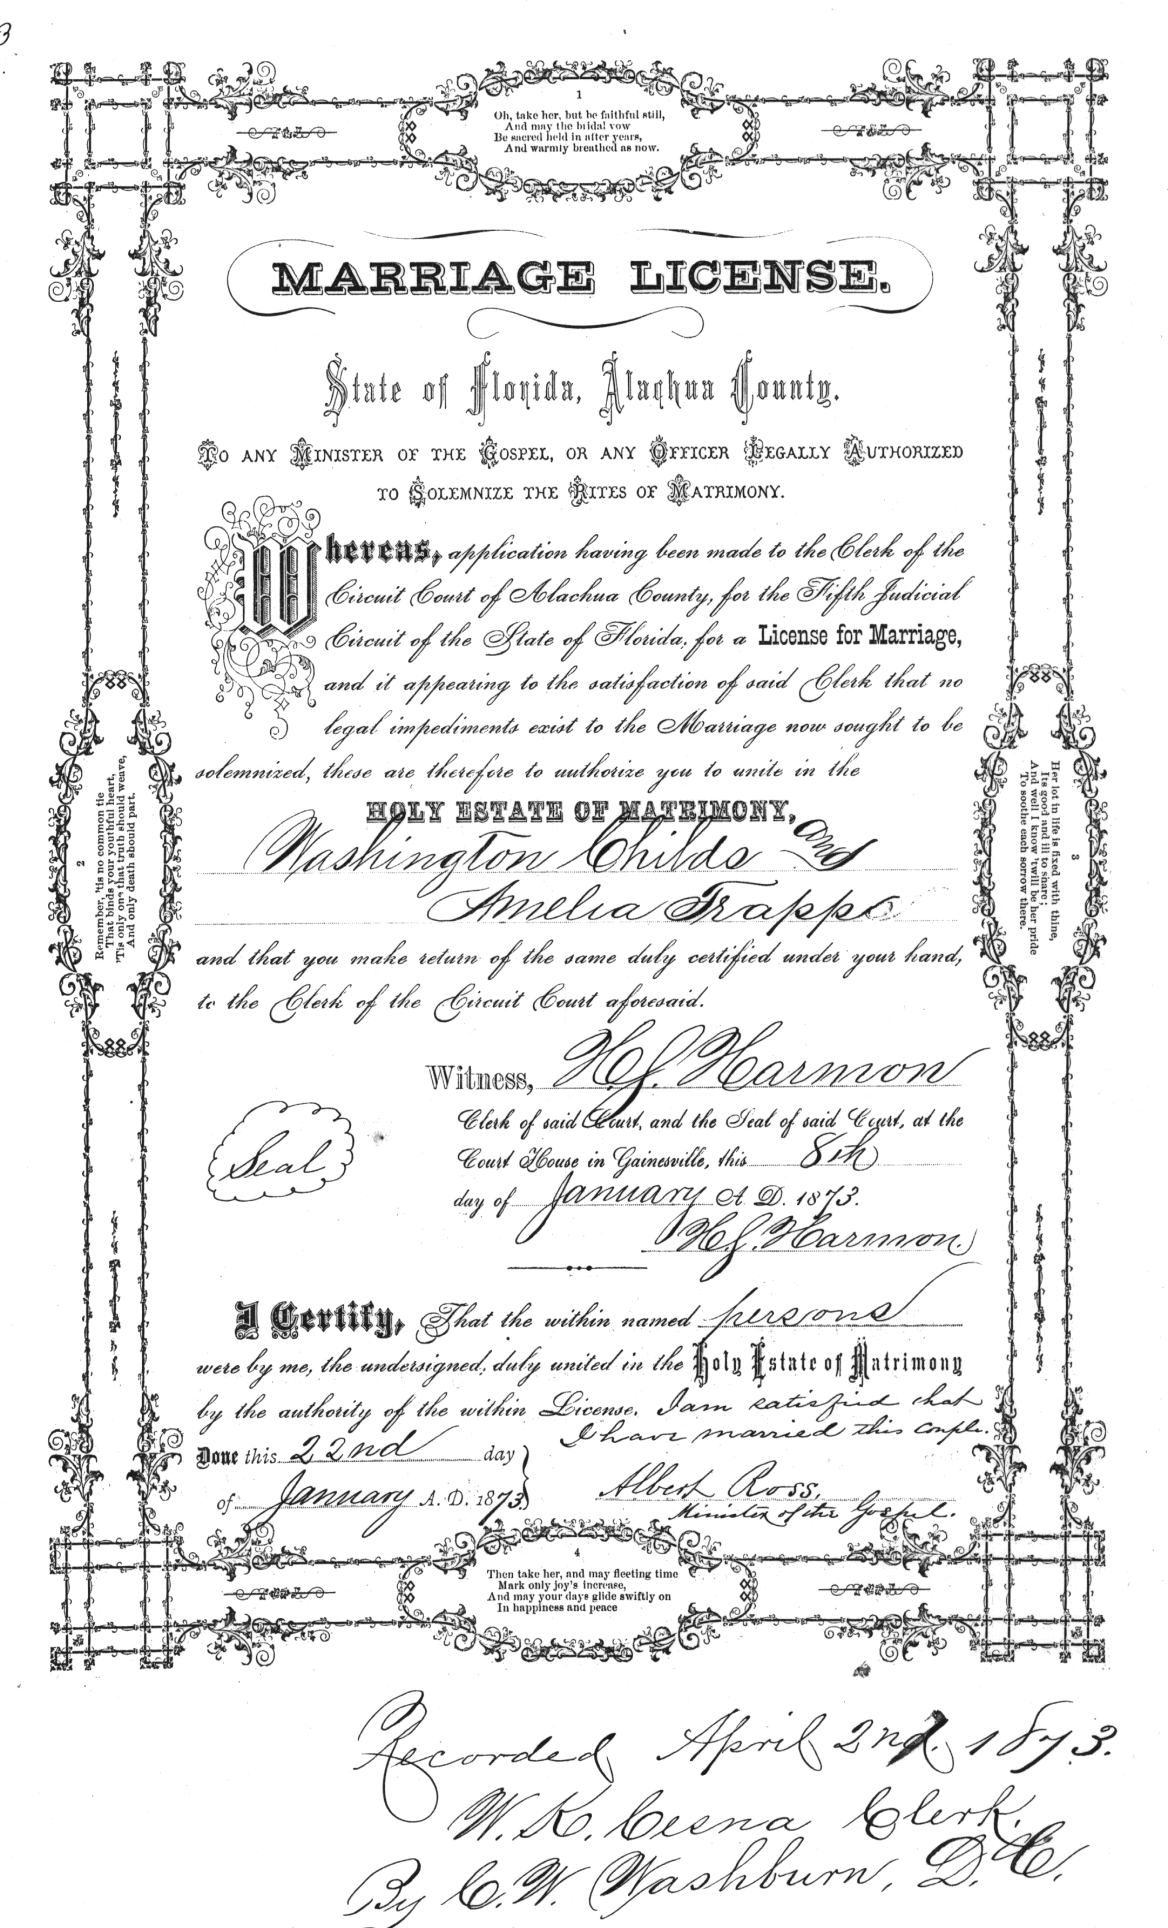 3
1
Oh, take her, but be faithful still,
And may the bridal vow
Be sacred held in after years,
And warmly breathed as now.
MARRIAGE LICENSE.
State of Florida, Alachua County.
TO ANY MINISTER OF THE GOSPEL, OR ANY OFFICER LEGALLY AUTHORIZED
TO SOLEMNIZE THE RITES OF MATRIMONY.
Whereas, application having been made to the Clerk of the
Circuit Court of Alachua County, for the Fifth Judicial
Circuit of the State of Florida, for a License for Marriage,
and it appearing to the satisfaction of said Clerk that no
legal impediments exist to the Marriage now sought to be
solemnized, these are therefore to authorize you to unite in the
HOLY ESTATE OF MATRIMONY,
Washington Childs and
Amelia Trapp
and that you make return of the same duly certified under your hand,
to the Clerk of the Circuit Court aforesaid.
2
Remember, 'tis no common tie
That binds your youthful heart,
'Tis only one that truth should weave,
And only death should part.
3
Her lot in life is fixed with thine,
Its good and ill to share;
And well I know 'twill be her pride
To soothe each sorrow there.
Witness, H.S. Harmon
Clerk of said Court, and the Seal of said Court, at the
Seal
Court House in Gainesville, this 8th
day of January A. D. 1873.
H.S. Harmon.
I Certify, That the within named persons
were by me, the undersigned, duly united in the Holy Estate of Matrimony
by the authority of the within License. I am satisfied that
I have married this couple.
Done this 22nd day
of January A. D. 1873
Albert Ross,
Minister of the Gospel.
4
Then take her, and may fleeting time
Mark only joy's increase,
And may your days glide swiftly on
In happiness and peace
Recorded April 2nd. 1873.
W. K. Cesna Clerk.
By C. W. Washburn, D. C.